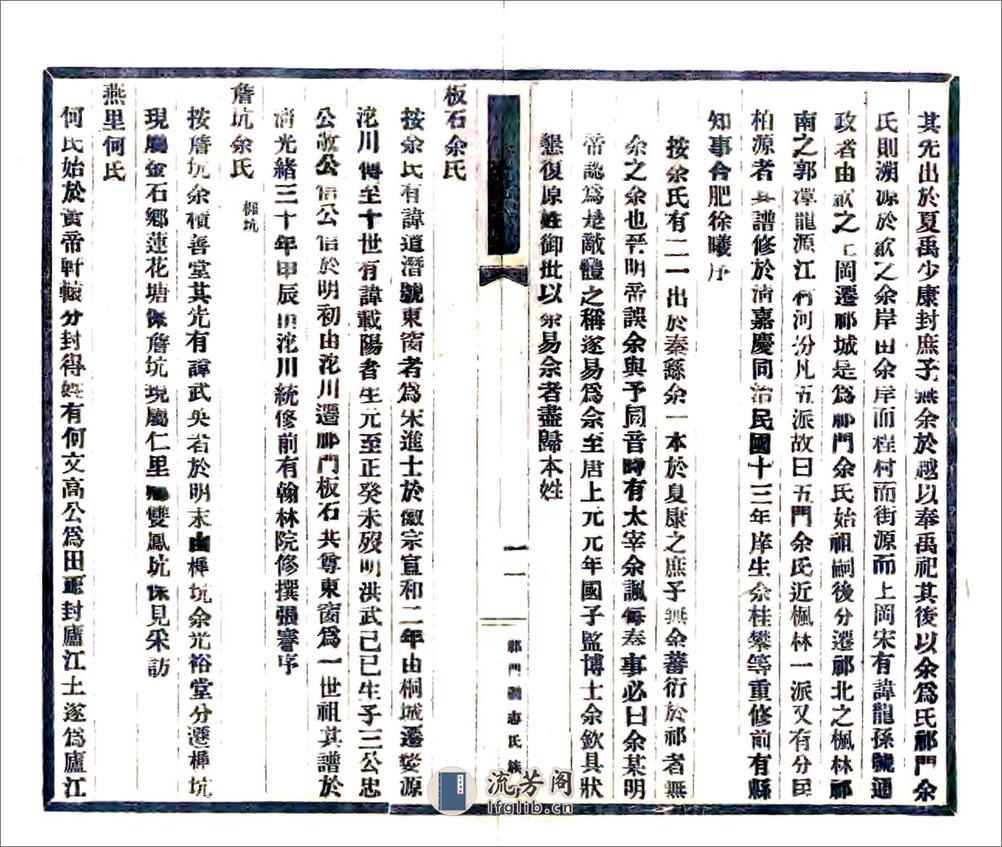 其先出於夏禹少康封庶子無余於越以奉禹祀其後以余為氏祁門余
氏則溯源於歙之余岸由余岸而程村而街源而上岡宋有諱龍孫號通
政者由歙之上岡遷祁城是為祁門余氏始祖嗣後分遷祁北之楓林祁
南之郭潭龍源江村河汾凡五派故曰五門余氏近楓林一派又有分居
柏源者其譜修於清嘉慶同治民國十三年庠生余桂攀等重修前有縣
知事合肥徐曦序
按余氏有二一出於秦繇余一本於夏康之庶子無余蕃衍於祁者無
余之余也晉明帝誤余與予同音時有太宰余諷每奏事必曰余某明
帝認為是敵體之稱遂易為佘至唐上元元年國子監博士余欽具狀
懇復原姓御批以余易佘者盡歸本姓
板石余氏
按余氏有諱道潛號東窗者為宋進士於徽宗宣和二年由桐城遷婺源
沱川傳至十世有諱載陽者生元至正癸未歿明洪武己巳生子三公忠
公敬公信公信於明初由沱川遷祁門板石共尊東窗為一世祖其譜於
清光緒三十年甲辰由沱川統修前有翰林院修撰張謇序
詹坑余氏 樨坑
按詹坑余積善堂其先有諱武英者於明末由樨坑余光裕堂分遷樨坑
現屬金石鄉蓮花塘保詹坑現屬仁里鄉雙鳳坑保見采訪
燕里何氏
何氏始於黃帝軒轅分封得姓有何文高公為田正封廬江土遂為廬江
一一
祁門縣志氏族
流芳阁
lfglib.cn